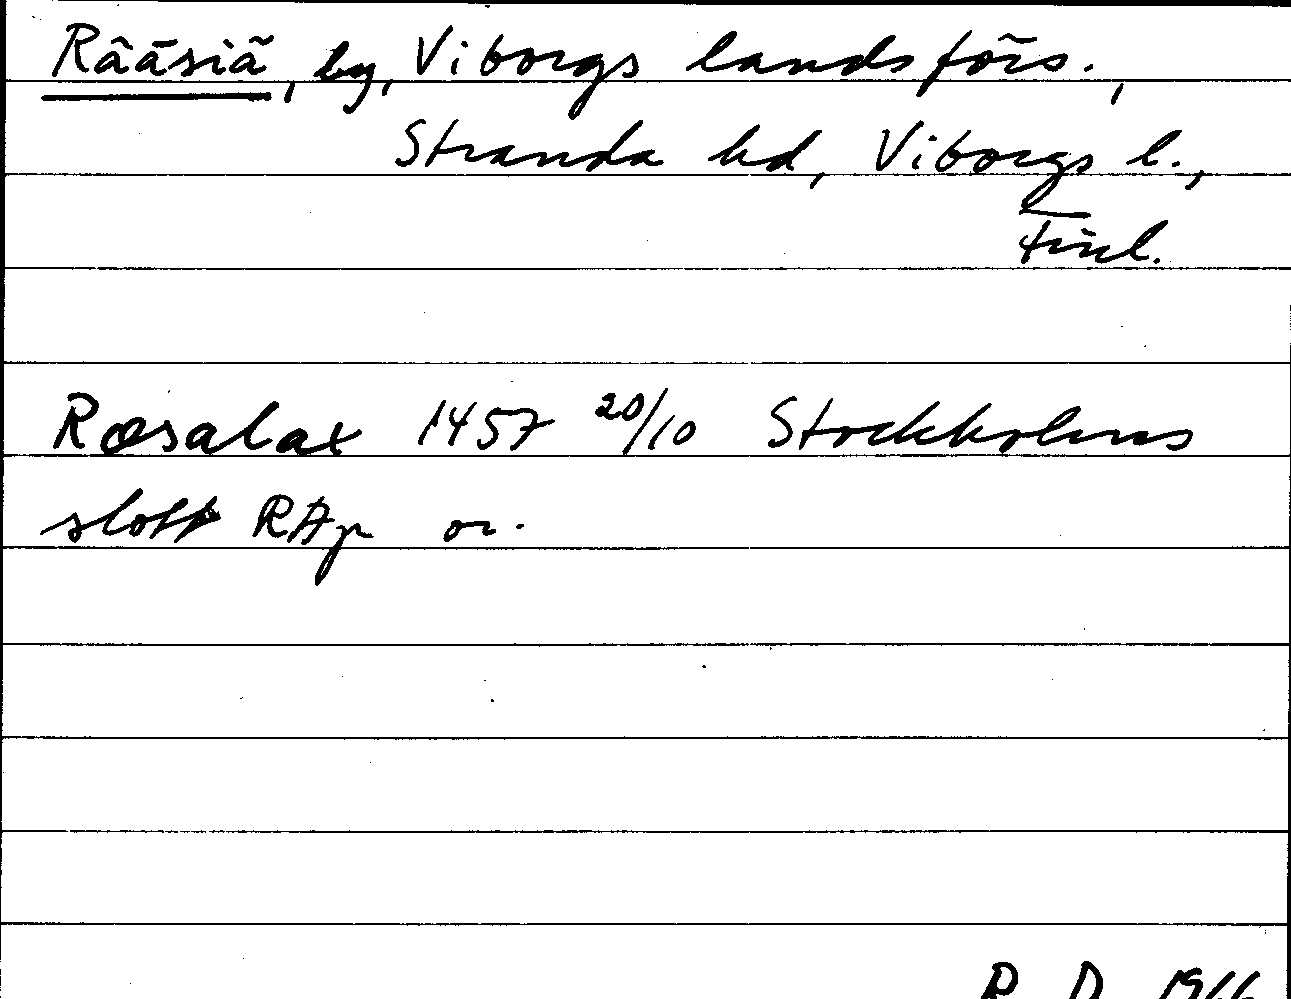 Rääsiä, by, Viborgs landsförs.,
Stranda hd, Viborgs l.,
Finl.
Ræsalax 1457 20/10 Stockholms
slott RAp or.
R D 1966